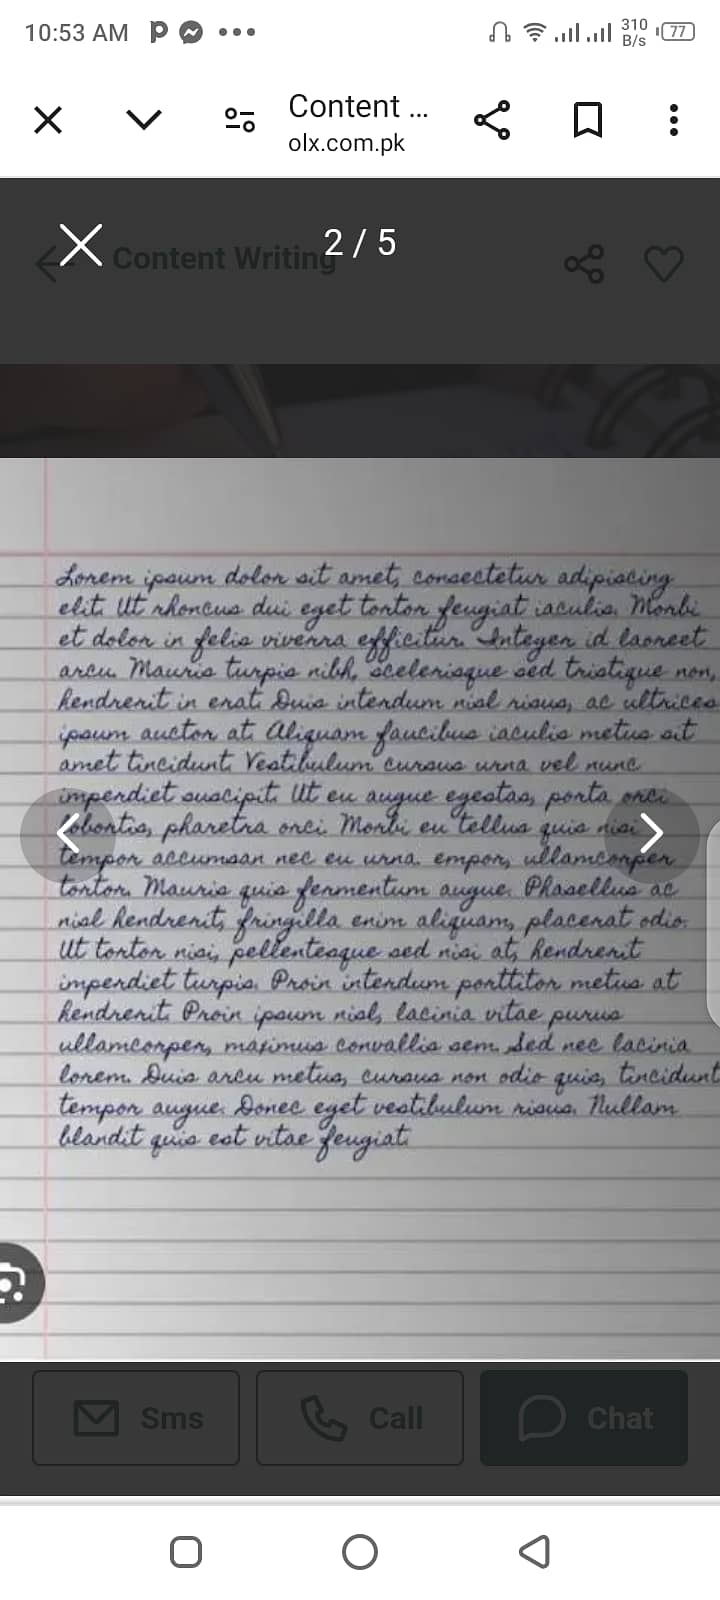 10:53 AM
310 B/s
77
Content ...
olx.com.pk
2 / 5
Content Writing
Lorem ipsum dolor sit amet, consectetur adipiscing
elit. Ut rhoncus dui eget tortor feugiat iaculis. Morbi
et dolor in felis viverra efficitur. Integer id laoreet
arcu. Mauris turpis nibh, scelerisque sed tristique non,
hendrerit in erat. Duis interdum nisl risus, ac ultrices
ipsum auctor at. Aliquam faucibus iaculis metus sit
amet tincidunt. Vestibulum cursus urna vel nunc
imperdiet suscipit. Ut eu augue egestas, porta orci
lobortis, pharetra orci. Morbi eu tellus quis nisi
tempor accumsan nec eu urna. empor, ullamcorper
tortor. Mauris quis fermentum augue. Phasellus ac
nisl hendrerit, fringilla enim aliquam, placerat odio.
Ut tortor nisi, pellentesque sed nisi at, hendrerit
imperdiet turpis. Proin interdum porttitor metus at
hendrerit. Proin ipsum nisl, lacinia vitae purus
ullamcorper, maximus convallis sem. Sed nec lacinia
lorem. Duis arcu metus, cursus non odio quis, tincidunt
tempor augue. Donec eget vestibulum risus. Nullam
blandit quis est vitae feugiat.
Sms
Call
Chat